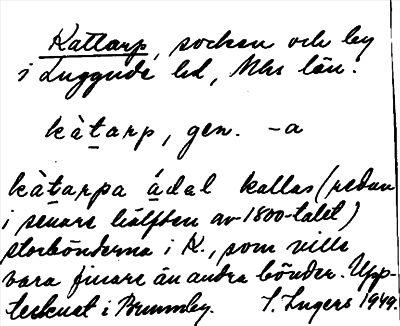 Kattarp, socken och by
i Luggude hd, Mhs län.
kàt̠arp, gen. -a
kàt̠arpa á̠dal kallas (redan
i senare hälften av 1800-talet)
storbönderna i K., som ville
vara finare än andra bönder. Upp-
tecknat i Brunnby. S. Ingers 1949.